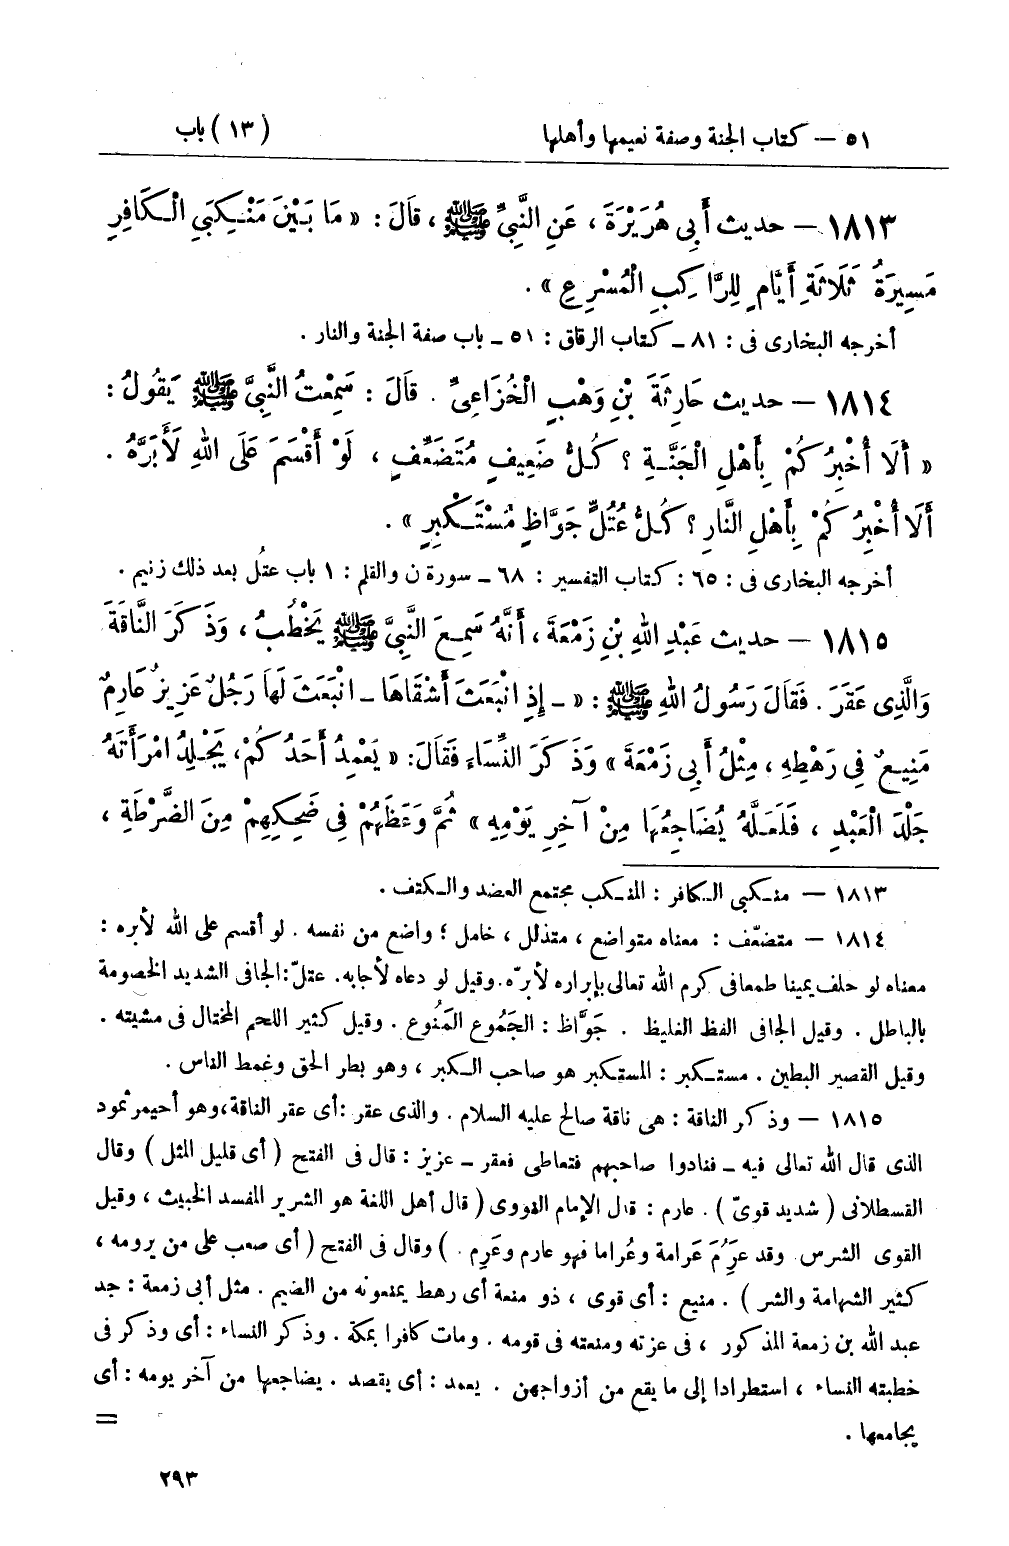 ٥١ – كتاب الجنة وصفة نعيمها وأهلها (١٣) باب
١٨١٣ – حديث أَبِى هُرَيْرَةَ ، عَنِ النَّبِىِّ ﷺ ، قَالَ : « مَا بَيْنَ مَنْكِبَىِ الْكَافِرِ
مَسِيرَةُ ثَلَاثَةِ أَيَّامٍ لِلرَّاكِبِ الْمُسْرِعِ » .
أخرجه البخارى فى : ٨١ – كتاب الرقاق : ٥١ – باب صفة الجنة والنار .
١٨١٤ – حديث حَارِثَةَ بْنِ وَهْبٍ الْخُزَاعِىِّ . قَالَ : سَمِعْتُ النَّبِىَّ ﷺ يَقُولُ :
« أَلَا أُخْبِرُكُمْ بِأَهْلِ الْجَنَّةِ ؟ كُلُّ ضَعِيفٍ مُتَضَعِّفٍ ، لَوْ أَقْسَمَ عَلَى اللهِ لَأَبَرَّهُ .
أَلَا أُخْبِرُكُمْ بِأَهْلِ النَّارِ ؟ كُلُّ عُتُلٍّ جَوَّاظٍ مُسْتَكْبِرٍ » .
أخرجه البخارى فى : ٦٥ : كتاب التفسير : ٦٨ – سورة ن والقلم : ١ باب عتُل بعد ذلك زنيم .
١٨١٥ – حديث عَبْدِ اللهِ بْنِ زَمْعَةَ ، أَنَّهُ سَمِعَ النَّبِىَّ ﷺ يَخْطُبُ ، وَذَكَرَ النَّاقَةَ
وَالَّذِى عَقَرَ . فَقَالَ رَسُولُ اللهِ ﷺ : « – إِذِ انْبَعَثَ أَشْقَاهَا – انْبَعَثَ لَهَا رَجُلٌ عَزِيزٌ عَارِمٌ
مَنِيعٌ فِى رَهْطِهِ ، مِثْلُ أَبِى زَمْعَةَ » وَذَكَرَ النِّسَاءَ فَقَالَ : « يَعْمِدُ أَحَدُكُمْ ، يَجْلِدُ امْرَأَتَهُ
جَلْدَ الْعَبْدِ ، فَلَعَلَّهُ يُضَاجِعُهَا مِنْ آخِرِ يَوْمِهِ » ثُمَّ وَعَظَهُمْ فِى ضَحِكِهِمْ مِنَ الضَّرْطَةِ ،
١٨١٣ – منكبى الكافر : المنكب مجتمع العضد والكتف .
١٨١٤ – متضعّف : معناه متواضع ، متذلل ، خامل ؛ واضع من نفسه . لو أقسم على الله لأبره :
معناه لو حلف يمينا طمعا فى كرم الله تعالى بإبراره لأبرّه . وقيل لو دعاه لأجابه . عتلّ : الجافى الشديد الخصومة
بالباطل . وقيل الجافى الفظ الغليظ . جَوَّاظ : الجَمُوع المَنُوع . وقيل كثير اللحم المختال فى مشيته .
وقيل القصير البطين . مستكبر : المستكبر هو صاحب الكبر ، وهو بطر الحق وغمط الناس .
١٨١٥ – وذكر الناقة : هى ناقة صالح عليه السلام . والذى عقر : أى عقر الناقة ، وهو أحيمر ثمود
الذى قال الله تعالى فيه – فنادوا صاحبهم فتعاطى فعقر – عزيز : قال فى الفتح ( أى قليل المثل ) وقال
القسطلانى ( شديد قوىّ ) . عارم : قال الإمام النووى ( قال أهل اللغة هو الشرير المفسد الخبيث ، وقيل
القوى الشرس وقد عرُِمَ عَرامة وعُراما فهو عارم وعَرِم . ) وقال فى الفتح ( أى صعب على من يرومه ،
كثير الشهامة والشر ) . منيع : أى قوى ، ذو منعة أى رهط يمنعونه من الضيم . مثل أبى زمعة : جد
عبد الله بن زمعة المذكور ، فى عزته ومنعته فى قومه . ومات كافرا بمكة . وذكر النساء : أى وذكر فى
خطبته النساء ، استطرادا إلى ما يقع من أزواجهن . يعمد : أى يقصد . يضاجعها من آخر يومه : أى
يجامعها . =
٢٩٣